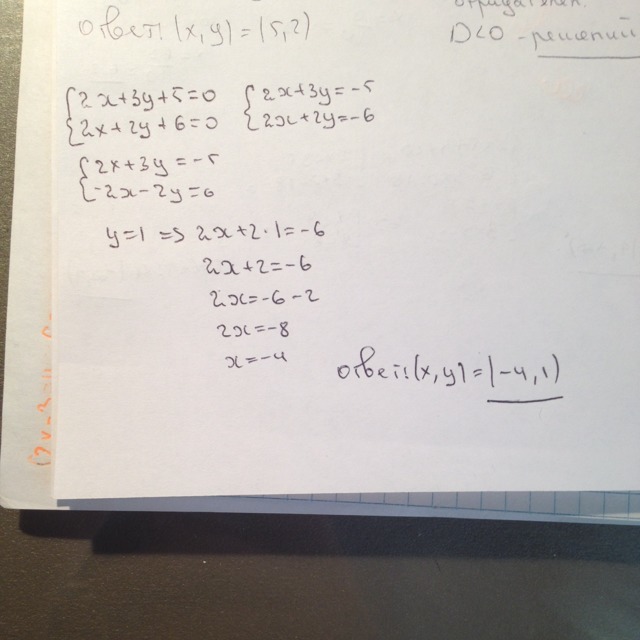 ответ: (x, y) = (5, 2)
D<0 - решений
{2x+3y+5=0 {2x+3y=-5
{2x+2y+6=0 {2x+2y=-6
{2x+3y=-5
{-2x-2y=6
y=1 => 2x+2·1=-6
2x+2=-6
2x=-6-2
2x=-8
x=-4
ответ: (x, y) = (-4, 1)